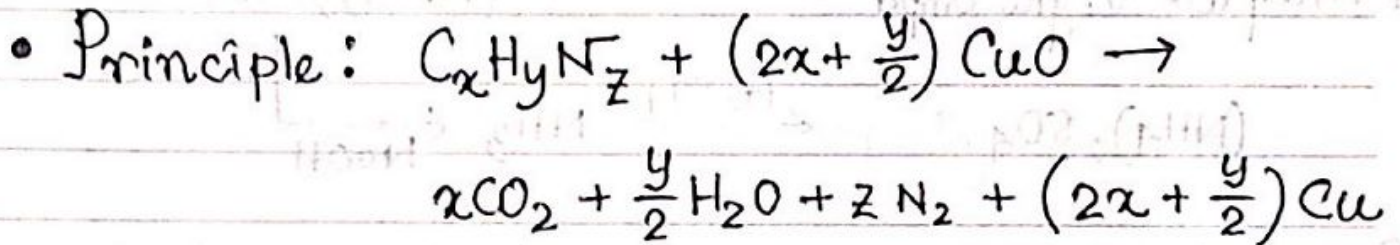 • Principle: CₓHᵧN_z + (2x + y/2) CuO →
xCO₂ + y/2 H₂O + z N₂ + (2x + y/2) Cu